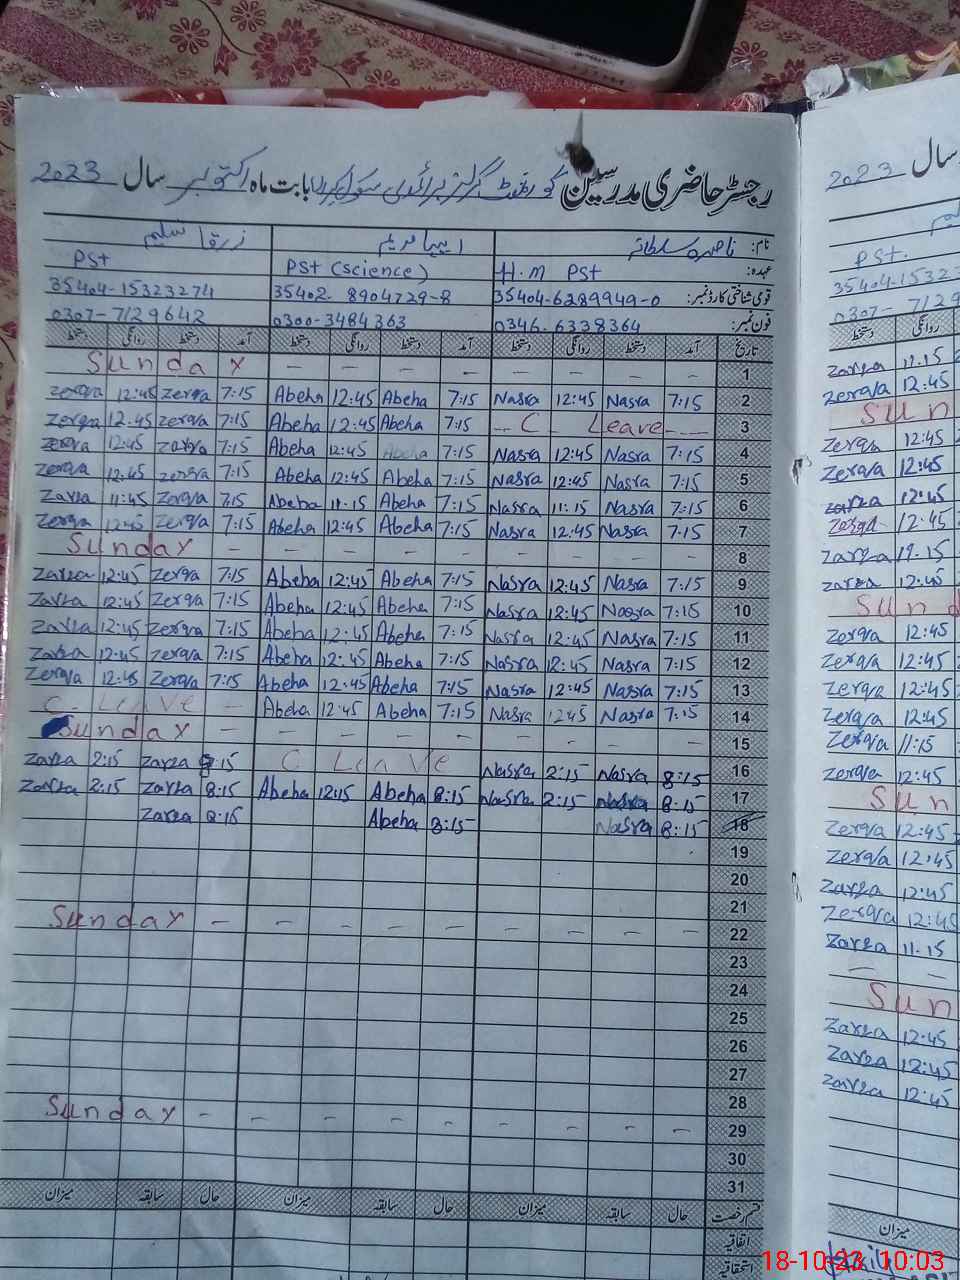 رجسٹر حاضری مدرسین گورنمنٹ گرلز پرائمری سکول بابت ماہ اکتوبر سال 2023
نام: ناصرہ سلطانہ زرقا سلیم
عہدہ: H.M PST PST (Science) PST
قومی شناختی کارڈ نمبر: 35404-6289949-0 35402-8904729-8 35404-15323274
فون نمبر: 0346-6338364 0300-3484363 0307-7129642
تاریخ آمد دستخط روانگی دستخط آمد دستخط روانگی دستخط آمد دستخط روانگی دستخط
Sunday - - - - - - - - 1
Zerqa 12:45 Zerqa 7:15 Abeha 12:45 Abeha 7:15 Nasra 12:45 Nasra 7:15 2
Zerqa 12:45 Zerqa 7:15 Abeha 12:45 Abeha 7:15 C. Leave 3
Zerqa 12:45 Zarqa 7:15 Abeha 12:45 Abeha 7:15 Nasra 12:45 Nasra 7:15 4
Zerqa 12:45 Zerqa 7:15 Abeha 12:45 Abeha 7:15 Nasra 12:45 Nasra 7:15 5
Zarza 11:45 Zerqa 7:15 Abeha 11:15 Abeha 7:15 Nasra 11:15 Nasra 7:15 6
Zerqa 12:45 Zerqa 7:15 Abeha 12:45 Abeha 7:15 Nasra 12:45 Nasra 7:15 7
Sunday - - - - - - - - - 8
Zarza 12:45 Zerqa 7:15 Abeha 12:45 Abeha 7:15 Nasra 12:45 Nasra 7:15 9
Zarza 12:45 Zerqa 7:15 Abeha 12:45 Abeha 7:15 Nasra 12:45 Nasra 7:15 10
Zarza 12:45 Zerqa 7:15 Abeha 12:45 Abeha 7:15 Nasra 12:45 Nasra 7:15 11
Zarza 12:45 Zerqa 7:15 Abeha 12:45 Abeha 7:15 Nasra 12:45 Nasra 7:15 12
Zerqa 12:45 Zerqa 7:15 Abeha 12:45 Abeha 7:15 Nasra 12:45 Nasra 7:15 13
C. Leave - Abeha 12:45 Abeha 7:15 Nasra 12:45 Nasra 7:15 14
Sunday - - - - - - - - - 15
Zarza 2:15 Zarza 8:15 C Leave Nasra 2:15 Nasra 8:15 16
Zarza 2:15 Zarza 8:15 Abeha 12:15 Abeha 8:15 Nasra 2:15 Nasra 8:15 17
Zarza 8:15 Abeha 8:15 Nasra 8:15 18
19
20
21
Sunday - - - - - - - - - 22
23
24
25
26
27
28
Sunday - - - - - - - - - 29
30
31
قسم رخصت حال سابقہ میزان حال سابقہ میزان حال سابقہ میزان
اتفاقیہ
استحقاقیہ
سال 2023
PST.
35404-15323
0307-7129
روانگی دستخط
Zarza 11.15
Zerqa 12:45
Sun
Zerqa 12:45
Zerqa 12:45
Zarza 12:45
Zerqa 12:45
Zarza 11.15
Zarza 12:45
Sun
Zerqa 12:45
Zerqa 12:45
Zerqa 12:45
Zerqa 12:45
Zerqa 11:15
Zerqa 12:45
Sun
Zerqa 12:45
Zerqa 12:45
Zarza 12:45
Zerqa 12:45
Zarza 11.15
- -
Sun
Zarza 12:45
Zarza 12:45
Zarza 12:45
میزان
18-10-23 10:03